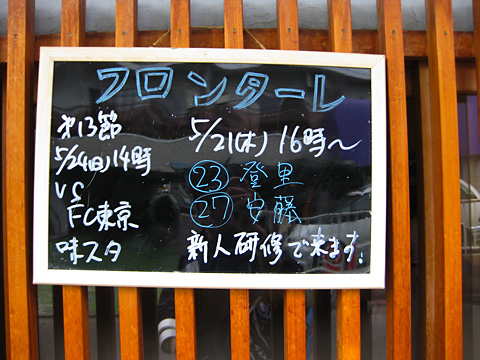 フロンターレ
第13節
5/24(日)14時
VS
FC東京
味スタ
5/21(木)16時〜
23 登里
27 安藤
新人研修で来ます。